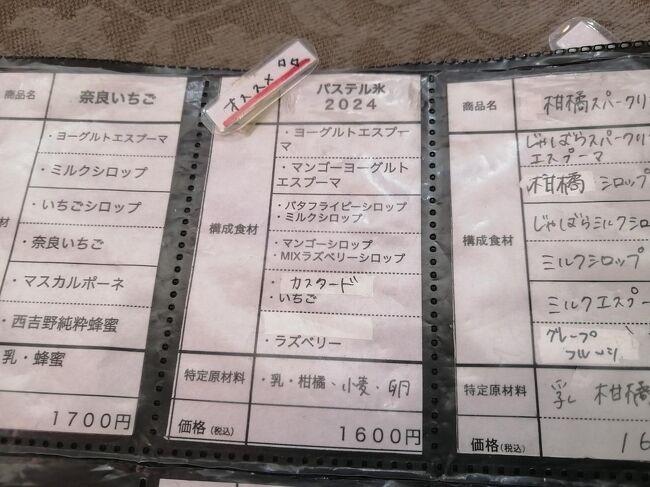 商品名
奈良いちご
・ヨーグルトエスプーマ
・ミルクシロップ
・いちごシロップ
・奈良いちご
・マスカルポーネ
・西吉野純粋蜂蜜
材
乳・蜂蜜
1700円
オススメ
パステル氷
2024
・ヨーグルトエスプーマ
・マンゴーヨーグルト
エスプーマ
・バタフライピーシロップ
・ミルクシロップ
・マンゴーシロップ
・MIXラズベリーシロップ
・カスタード
・いちご
・ラズベリー
構成食材
特定原材料
・乳・柑橘、小麦・卵
価格(税込)
1600円
商品名
柑橘スパークリ
じゃばらスパークリ
エスプーマ
柑橘 シロップ
じゃばらミルクシロ
ミルクシロップ
ミルクエスプー
グレープ
フルーツ
構成食材
特定原材料
乳 柑橘
価格(税込)
16